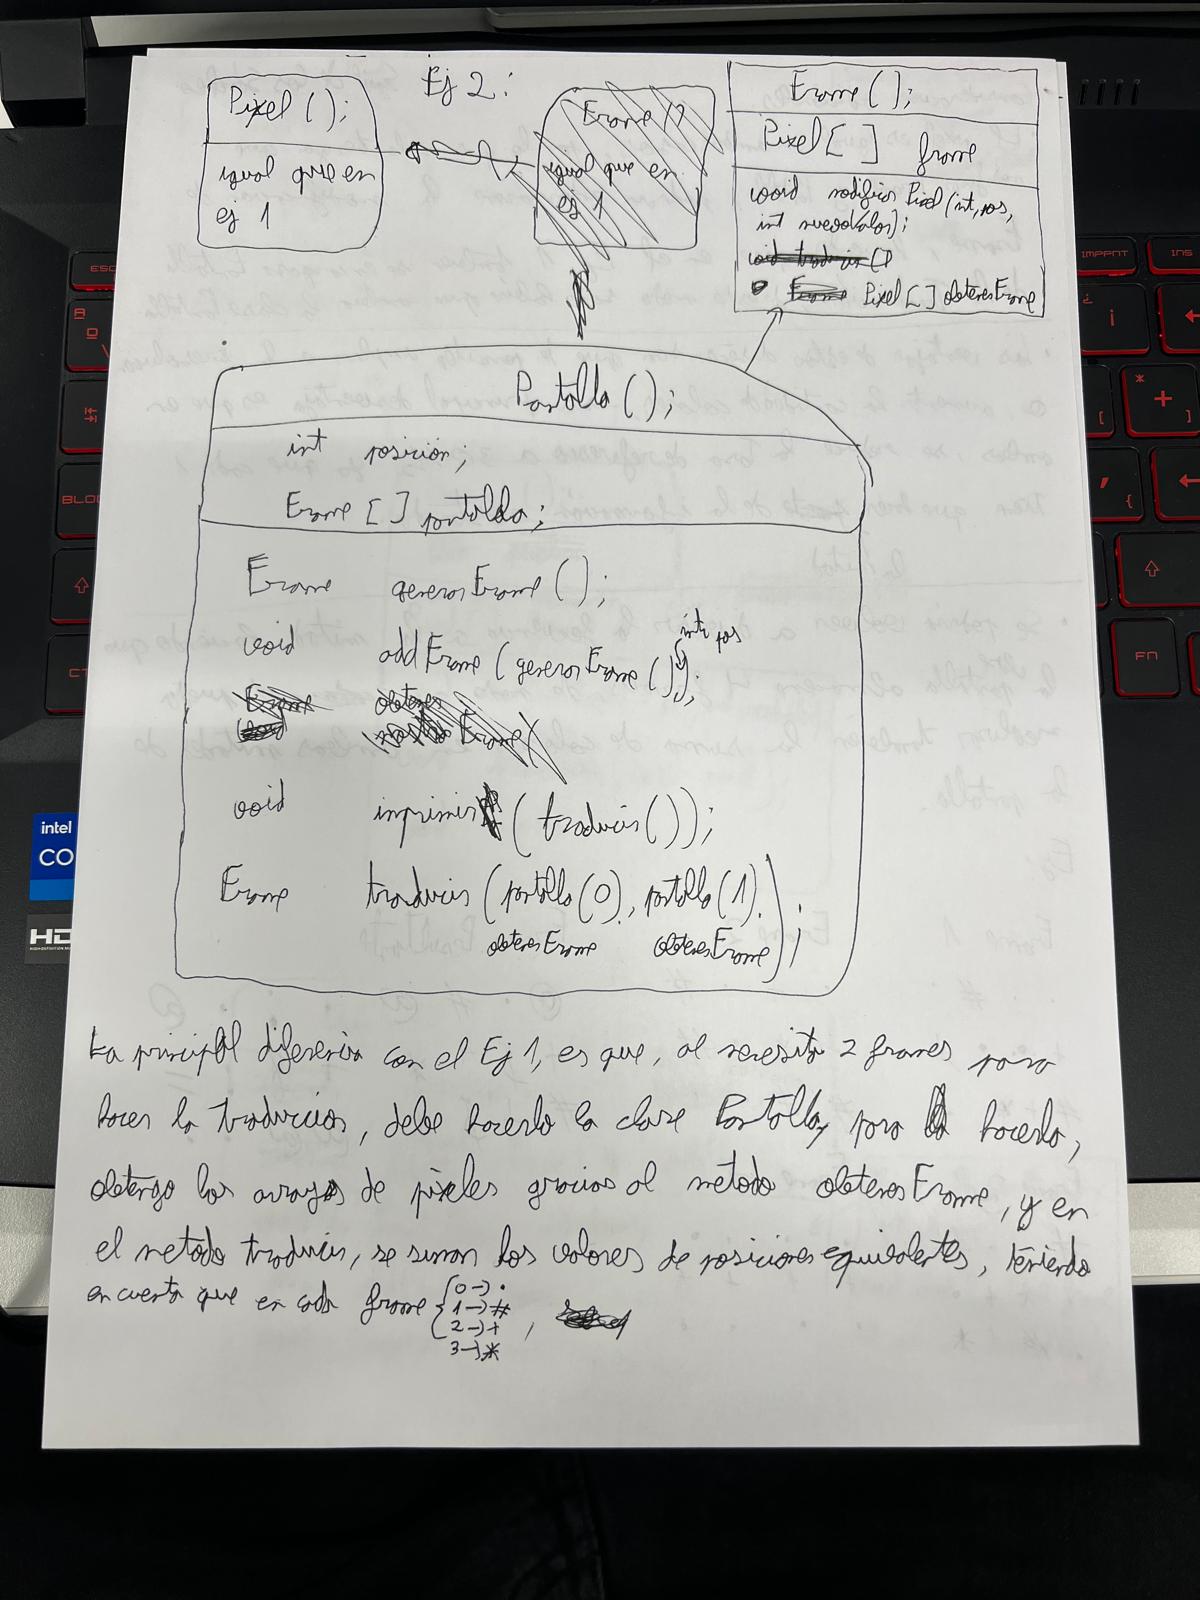 Ej 2:
Pixel ();
igual que en
ej 1
Frame ()
igual que en
ej 1
Frame ();
Pixel [ ] frame
void modificar Pixel (int, pos,
int nuevoValor);
void traducir ()
Frame Pixel [ ] obtenerFrame
Pantalla ();
int posición;
Frame [ ] pantalla;
Frame generarFrame ();
int pos
void addFrame (generarFrame ());
Frame obtener
void Frame
void imprimir (traducir ());
Frame traducir (pantalla (0), pantalla (1).
obtenerFrame obtenerFrame );
La principal diferencia con el Ej 1, es que, al necesitar 2 frames para
hacer la traducción, debe hacerlo la clase Pantalla, para hacerlo,
obtengo los arrays de pixeles gracias al metodo obtenerFrame, y en
el metodo traducir, se suman los valores de posiciones equivalentes, teniendo
en cuenta que en cada frame { 0 → .
1 → #
2 → + ,
3 → *
ESC
BLOQ
CT
intel
CO
HD
IMPPNT
INS
FN